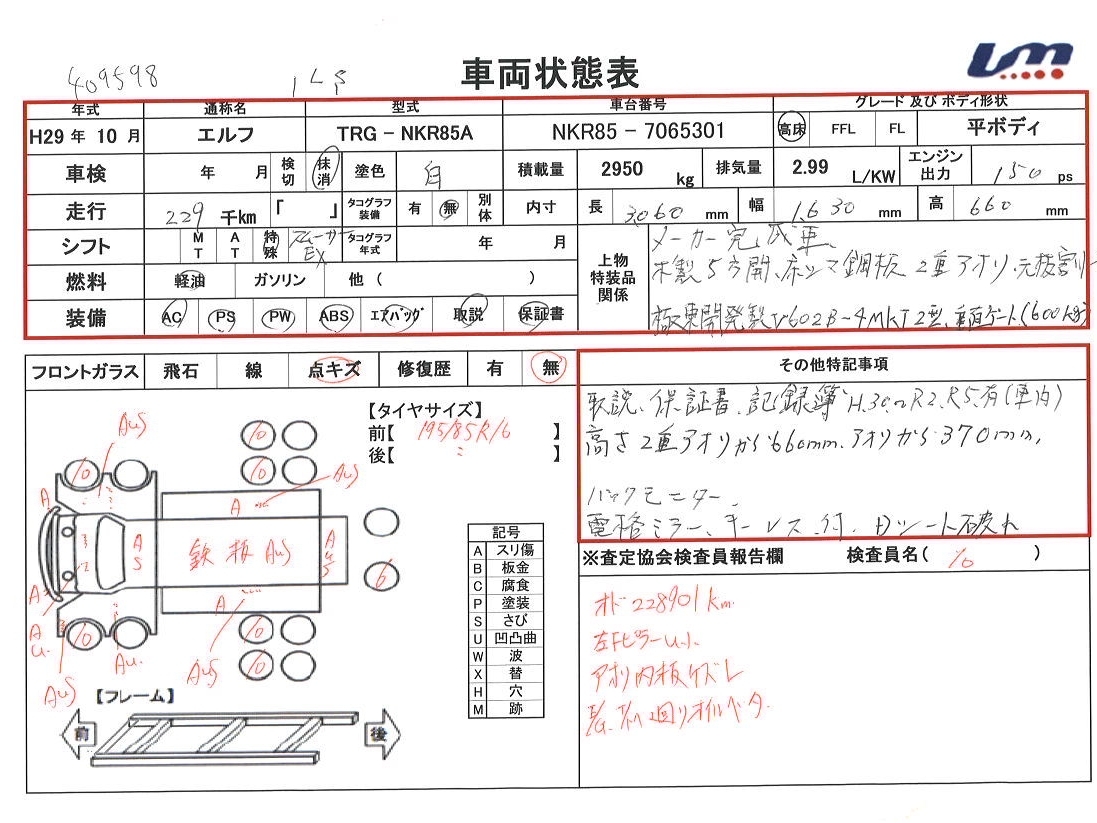 409598
車両状態表
Um
年式 通称名 型式 車台番号 グレード 及び ボディ形状
H29 年 10 月 エルフ TRG - NKR85A NKR85 - 7065301 高床 FFL FL 平ボディ
車検 年 月 検切 抹消 塗色 白 積載量 2950 kg 排気量 2.99 L/KW エンジン出力 150 ps
走行 229 千km 「 」 タコグラフ装備 有 無 別体 内寸 長 3060 mm 幅 1,630 mm 高 660 mm
シフト MT AT 特殊 スムーサーEX タコグラフ年式 年 月
燃料 軽油 ガソリン 他 ( )
装備 AC PS PW ABS エアバッグ 取説 保証書
上物特装品関係
メーカー完成車、
木製5方開、床シマ鋼板 2重アオリ、元板割り
極東開発製V602B-4MKT2型、垂直ゲート、(600kg)
フロントガラス 飛石 線 点キズ 修復歴 有 無
その他特記事項
取説、保証書、記録簿 H.30、R2、R5、有(車内)
高さ2重アオリから660mm、アオリから370mm、
バックモニター、
電格ミラー、キーレス付、Dシート破れ
【タイヤサイズ】
前【 195/85R16 】
後【 〃 】
10 10 10 10 10 10 6
AUS
AUS
A
A
A S
鉄板 AUS
AUS
A
A
A
U.
AUS
AU.
AUS
記号
A スリ傷
B 板金
C 腐食
P 塗装
S さび
U 凹凸曲
W 波
X 替
H 穴
M 跡
【フレーム】
前 後
※査定協会検査員報告欄 検査員名( )
オド 228901km.
左Fピラー U.小
アオリ内板ケズレ